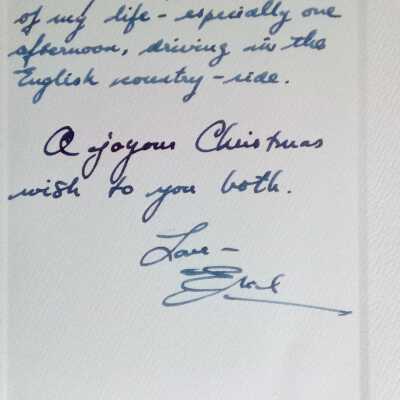 of my life - especially one
afternoon, driving in the
English country-side.
A joyous Christmas
wish to you both.
Love -